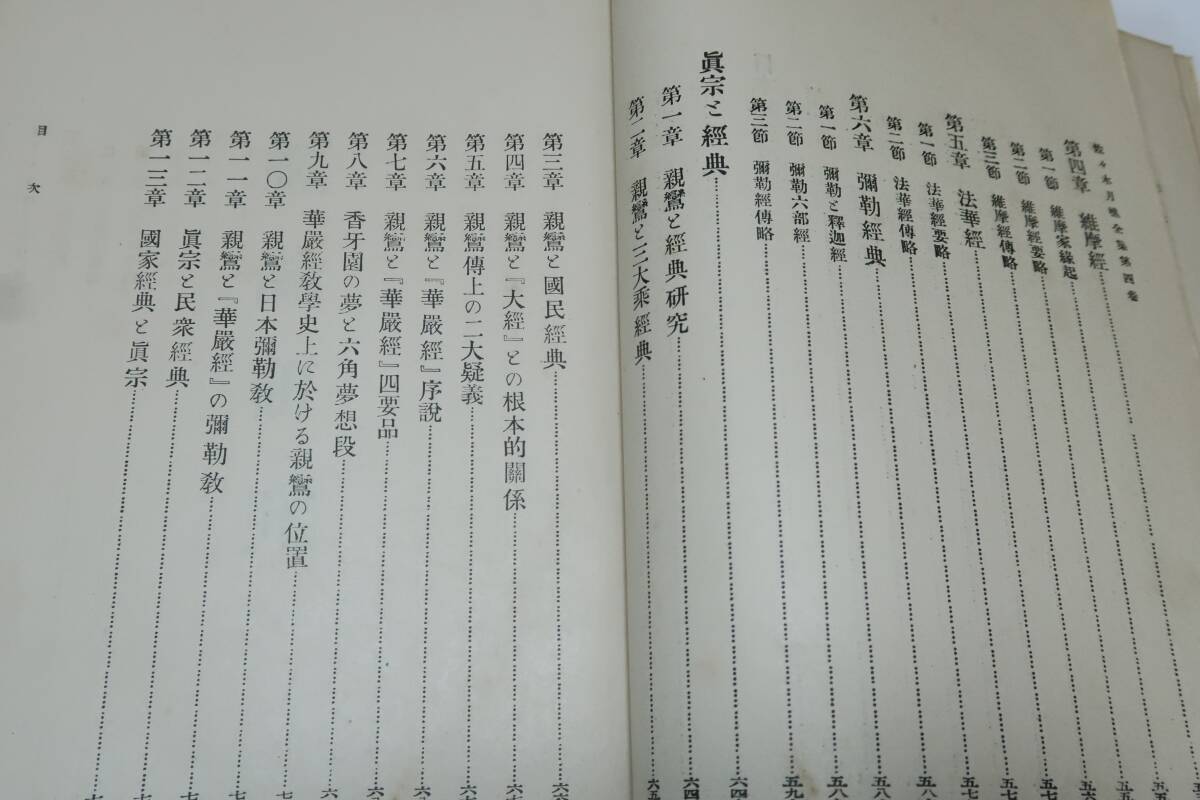 佐々木月樵全集第四卷
第四章 維摩經
第一節 維摩家緣起
第二節 維摩經要略
第三節 維摩經傳略
第五章 法華經
第一節 法華經要略
第二節 法華經傳略
第六章 彌勒經典
第一節 彌勒と釋迦經
第二節 彌勒六部經
第三節 彌勒經傳略
眞宗と經典
第一章 親鸞と經典研究
第二章 親鸞と三大乘經典
第三章 親鸞と國民經典
第四章 親鸞と『大經』との根本的關係
第五章 親鸞傳上の二大疑義
第六章 親鸞と『華嚴經』序說
第七章 親鸞と『華嚴經』四要品
第八章 香牙園の夢と六角夢想段
第九章 華嚴經教學史上に於ける親鸞の位置
第一〇章 親鸞と日本彌勒教
第一一章 親鸞と『華嚴經』の彌勒教
第一二章 眞宗と民衆經典
第一三章 國家經典と眞宗
目次